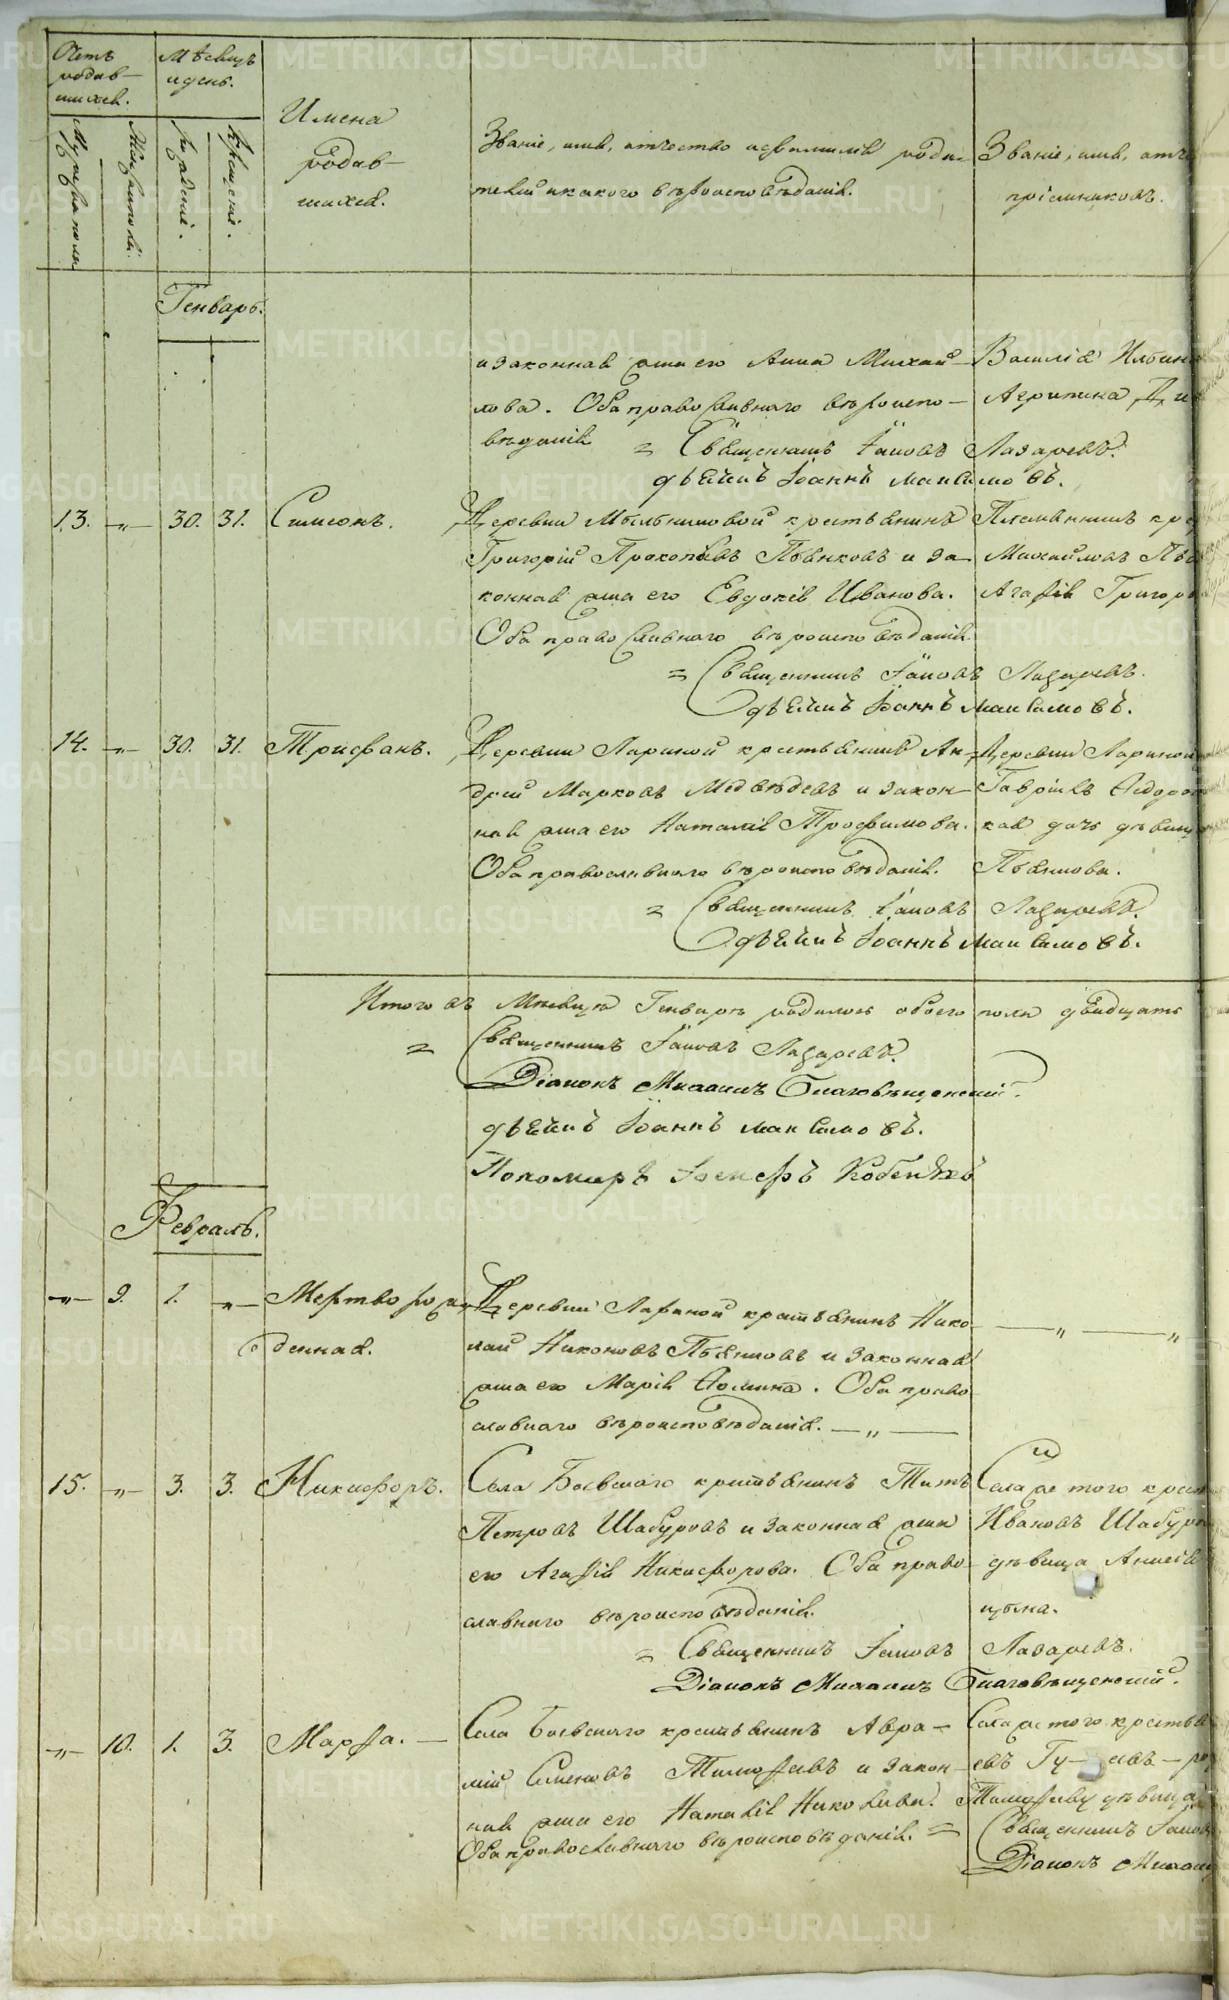 Счетъ родив-
шихся.
Мѣсяцъ
и день.
Мужеска пола
Женска
рожденія.
крещенія.
Имена
родив-
шихся.
Званіе, имя, отчество и фамилія роди-
телей и какого вѣроисповѣданія.
Званіе, имя, отче
пріемниковъ.
Генварь.
и законная жена его Анна Михай-
лова. Оба православнаго вѣроиспо-
вѣданія = Священникъ Іаковъ Лазаревъ.
дьячикъ Іоаннъ Максимовъ.
Василій Ильинъ
Агрипина
13. -„- 30. 31. Симеонъ.
Деревни Мыльниковой крестьянинъ
Григорій Прокопьевъ Пьянковъ и за-
конная жена его Евдокія Иванова.
Оба православнаго вѣроисповѣданія.
= Священникъ Іаковъ Лазаревъ.
дьячикъ Іоаннъ Максимовъ.
Племянникъ кре
Михайловъ Пья
Агафія Григорь
14. -„- 30. 31. Трифонъ.
Деревни Лариной крестьянинъ Ан-
дрей Марковъ Медвѣдевъ и закон-
ная жена его Наталія Трофимова.
Оба православнаго вѣроисповѣданія.
= Священникъ Іаковъ Лазаревъ.
дьячикъ Іоаннъ Максимовъ.
Деревни Лариной
Гавріилъ Ѳедоро
ков дочь дѣвица
Пьянкова.
Итого въ Мѣсяцѣ Генварѣ родилось обоего пола двадцать
= Священникъ Іаковъ Лазаревъ.
Діаконъ Михаилъ Благовѣщенскій.
дьячикъ Іоаннъ Максимовъ.
Пономарь Іосифъ
Февраль.
-„- 9. 1. -„- Мертворож-
денная.
Деревни Лариной крестьянинъ Нико-
лай Никоновъ Пьянковъ и законная
жена его Марія Ѳомина. Оба право-
славнаго вѣроисповѣданія. -„-
-„- „
15. -„- 3. 3. Никифоръ.
Села Боевскаго крестьянинъ Титъ
Петровъ Шабуровъ и законная жена
его Агафія Никифорова. Оба право-
славнаго вѣроисповѣданія.
= Священникъ Іаковъ Лазаревъ.
Діаконъ Михаилъ Благовѣщенскій.
Села же того крест
Ивановъ Шабуро
дѣвица Анисія
цына.
-„- 10. 1. 3. Марфа. -
Села Боевскаго крестьянинъ Авра-
мій Семеновъ Тимофеевъ и закон-
ная жена его Наталія Николаева.
Оба православнаго вѣроисповѣданія. =
Села же того крестья
Тимофеева дѣвица
Священникъ Іаковъ
Діаконъ Михаи
METRIKI.GASO-URAL.RU